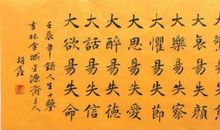 大哀易失顏
大樂易失察
大懼易失節
大思易失愛
大醉易失德
大話易失信
大欲易失命
壬辰年錄人生十鑒
吉林金城
源齋主人